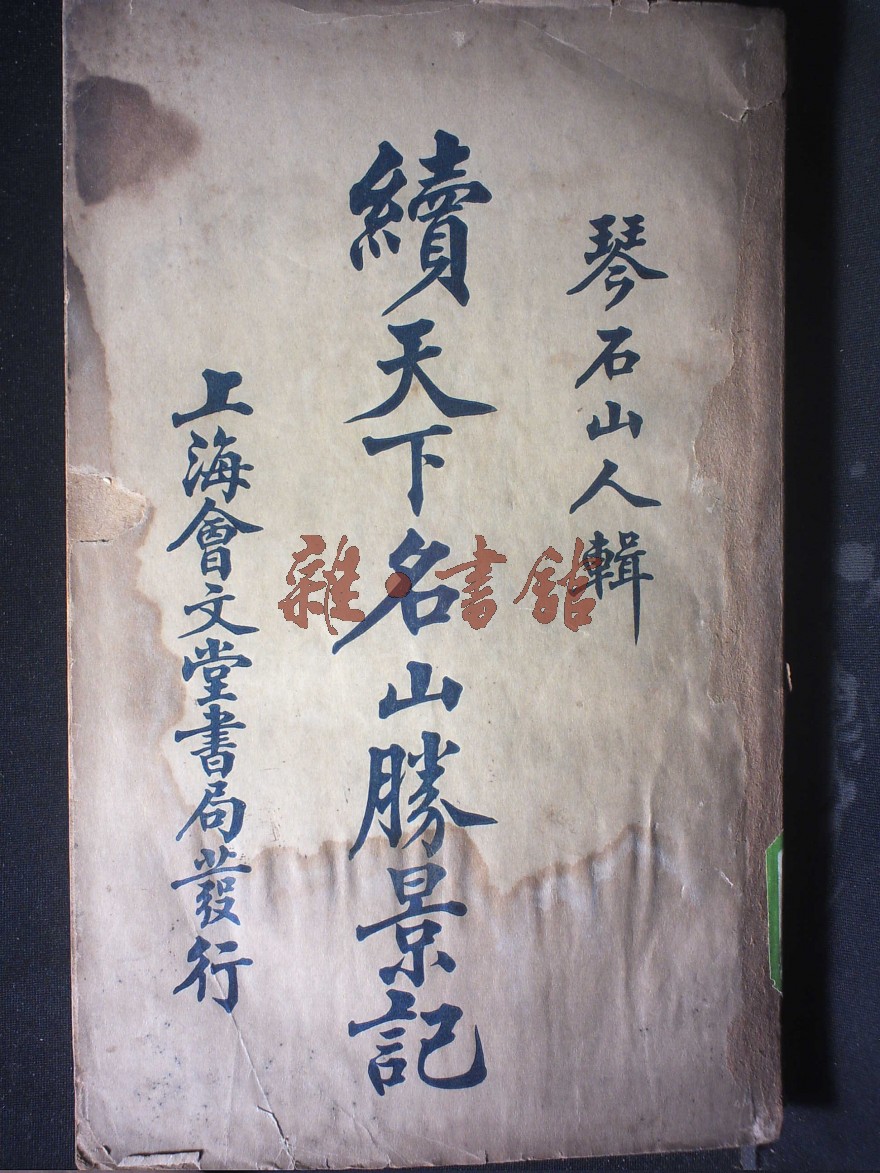 琴石山人輯
續天下名山勝景記
上海會文堂書局發行
雜·書館